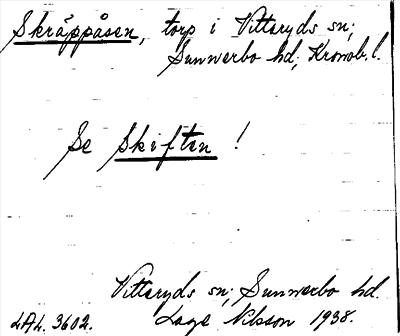 Skräppåsen, torp i Vitteryds sn;
Sunnerbo hd; Kronob. l.
Se Skiften !
Vitteryds sn; Sunnerbo hd.
LAL. 3602. Lage Nilsson 1938.